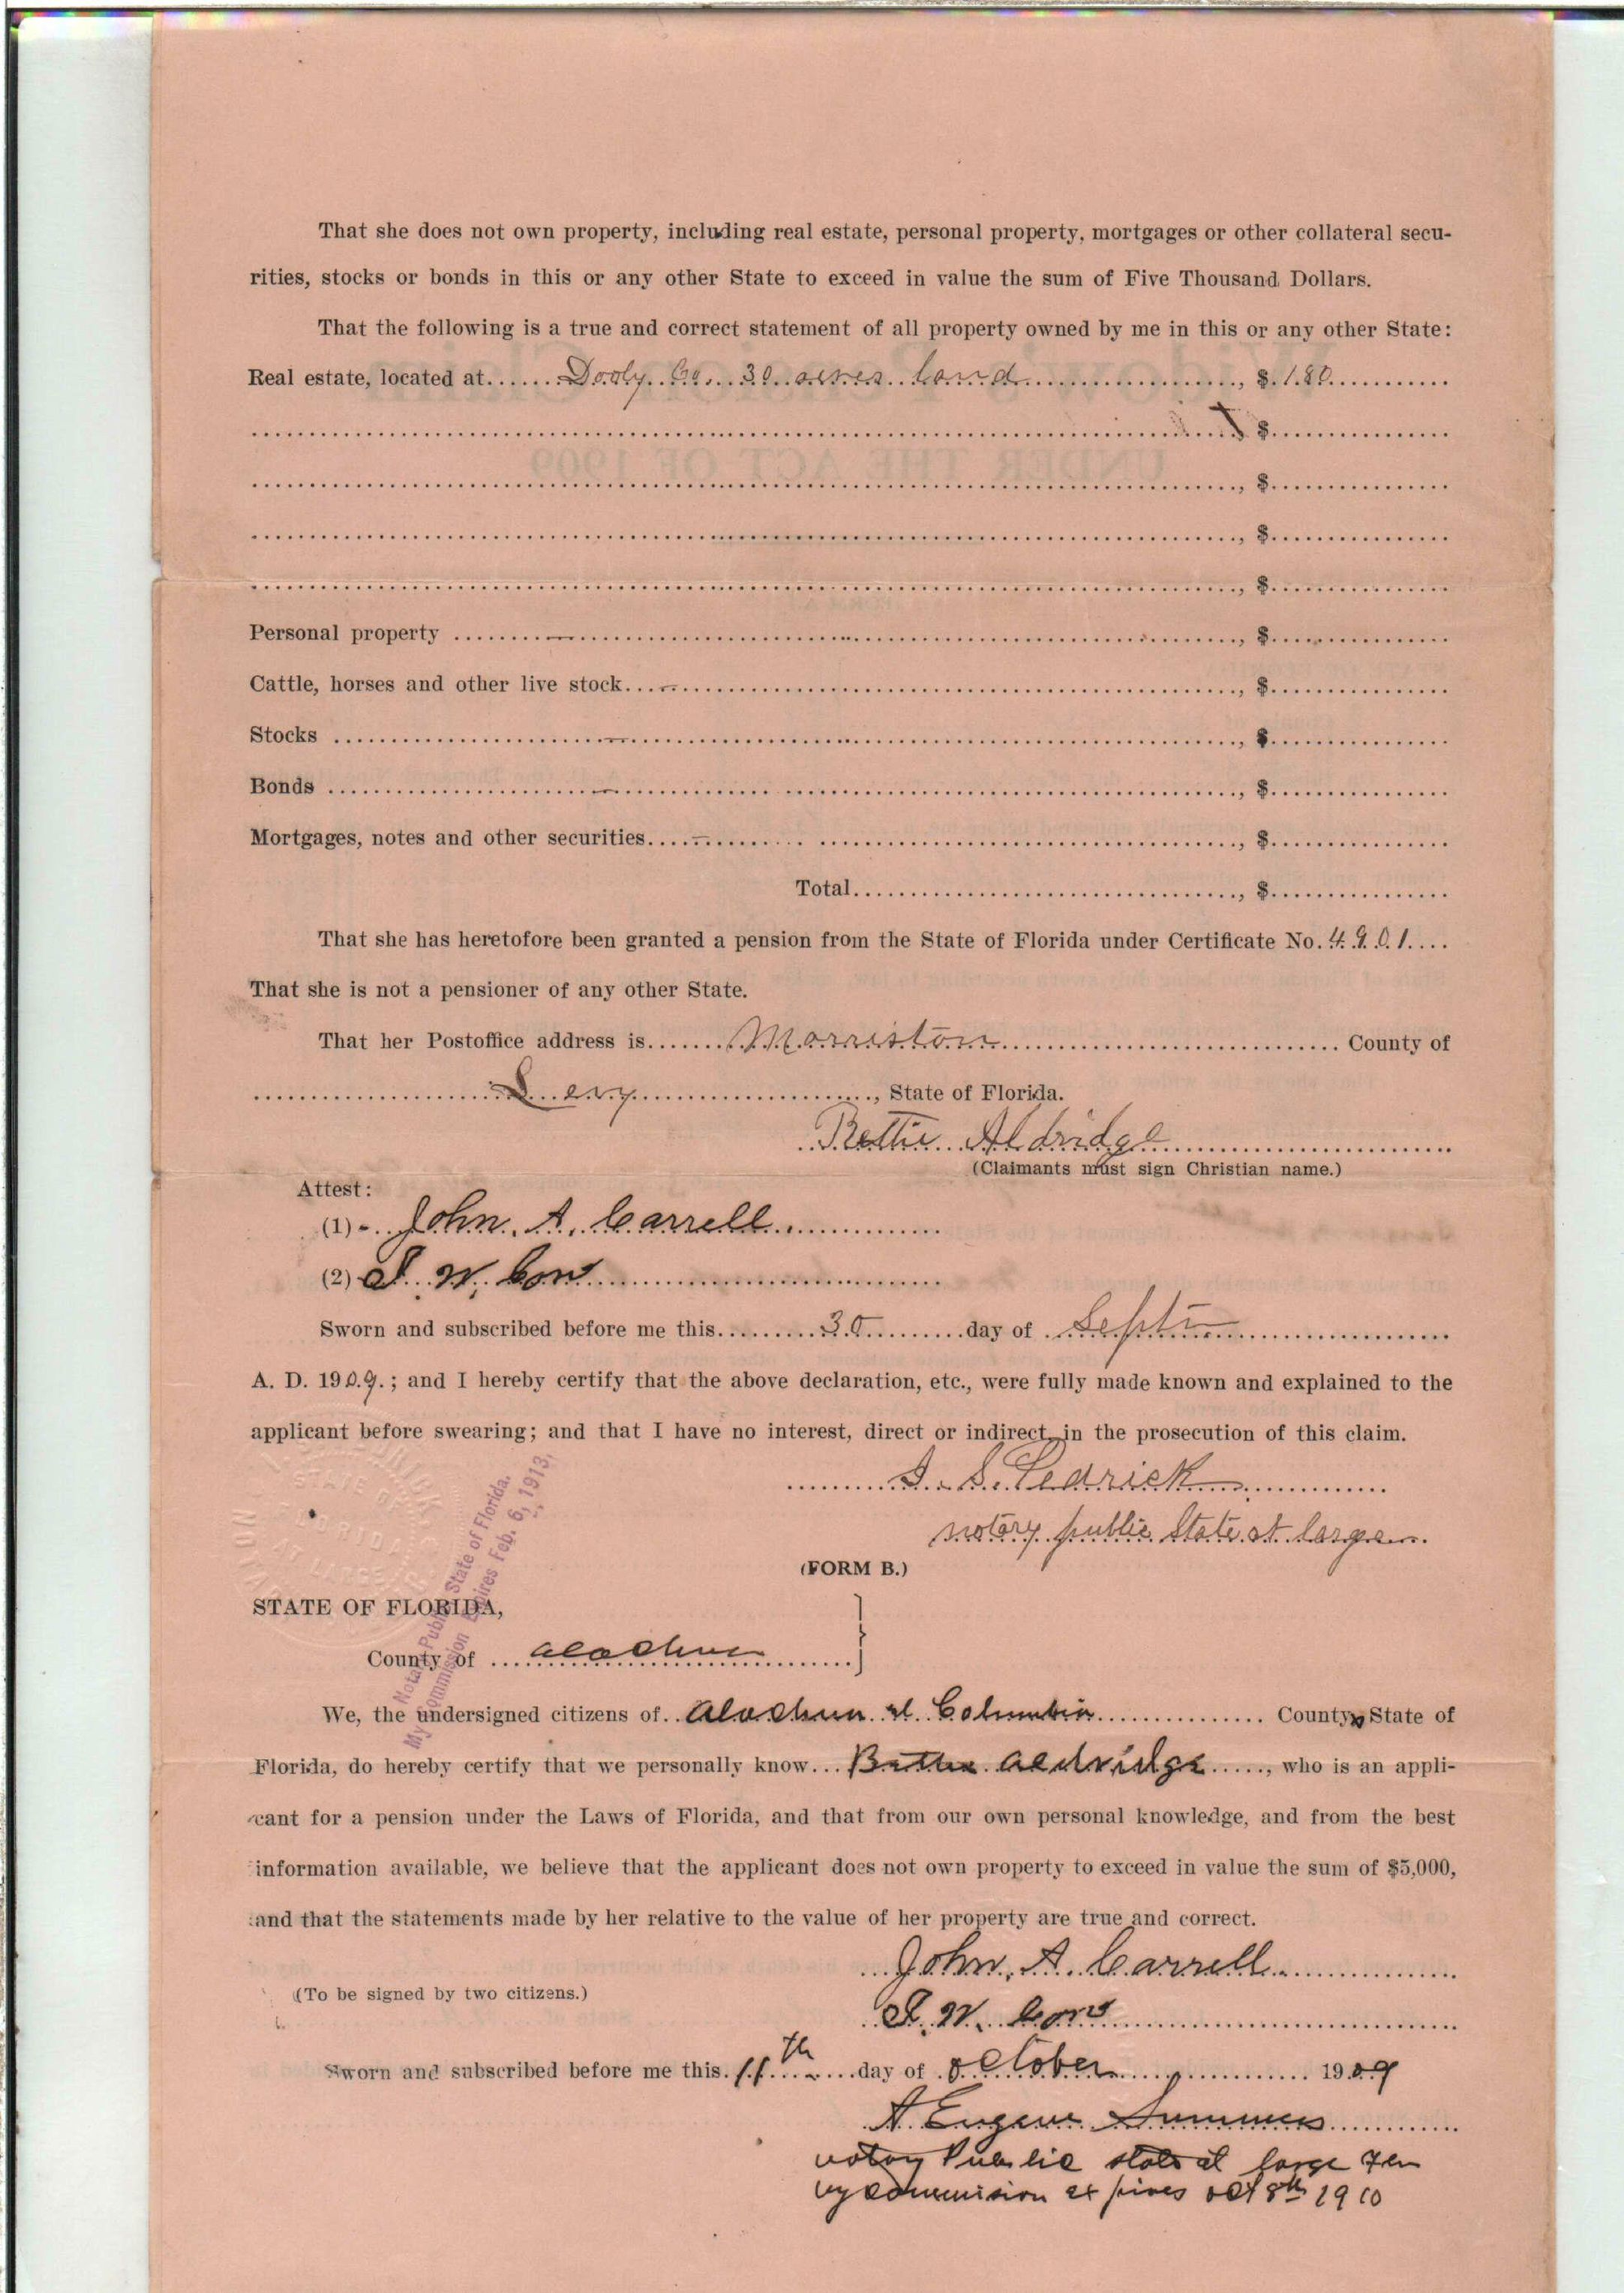 That she does not own property, including real estate, personal property, mortgages or other collateral secu-
rities, stocks or bonds in this or any other State to exceed in value the sum of Five Thousand Dollars.
That the following is a true and correct statement of all property owned by me in this or any other State:
Real estate, located at....... Dooly Co. 30 acres land ..............., $ 180...........
, $................
, $................
, $................
, $................
Personal property ..............................., $................
Cattle, horses and other live stock..............................., $................
Stocks ..............................., $................
Bonds ..............................., $................
Mortgages, notes and other securities..............................., $................
Total..............................., $................
That she has heretofore been granted a pension from the State of Florida under Certificate No. 4901....
That she is not a pensioner of any other State.
That her Postoffice address is....... Morriston ............................... County of
............... Levy ..............., State of Florida.
Bettie Aldridge
(Claimants must sign Christian name.)
Attest:
(1) John A. Carrell
(2) W.
Sworn and subscribed before me this......... 30 .........day of Sept
A. D. 1909.; and I hereby certify that the above declaration, etc., were fully made known and explained to the
applicant before swearing; and that I have no interest, direct or indirect, in the prosecution of this claim.
S. Pedrick
notary public State at large
Notary Public State of Florida.
My Commission Expires Feb. 6, 1913.
(FORM B.)
STATE OF FLORIDA,
County of .... Alachua
We, the undersigned citizens of.. Alachua & Columbia ............... County State of
Florida, do hereby certify that we personally know... Bettie Aldridge ....., who is an appli-
cant for a pension under the Laws of Florida, and that from our own personal knowledge, and from the best
information available, we believe that the applicant does not own property to exceed in value the sum of $5,000,
and that the statements made by her relative to the value of her property are true and correct.
John A. Carrell
(To be signed by two citizens.)
W.
Sworn and subscribed before me this. 11th ....day of October ............... 1909
A Eugene Summers
notary Public state at large Fla
my commission expires oct 8th 1910